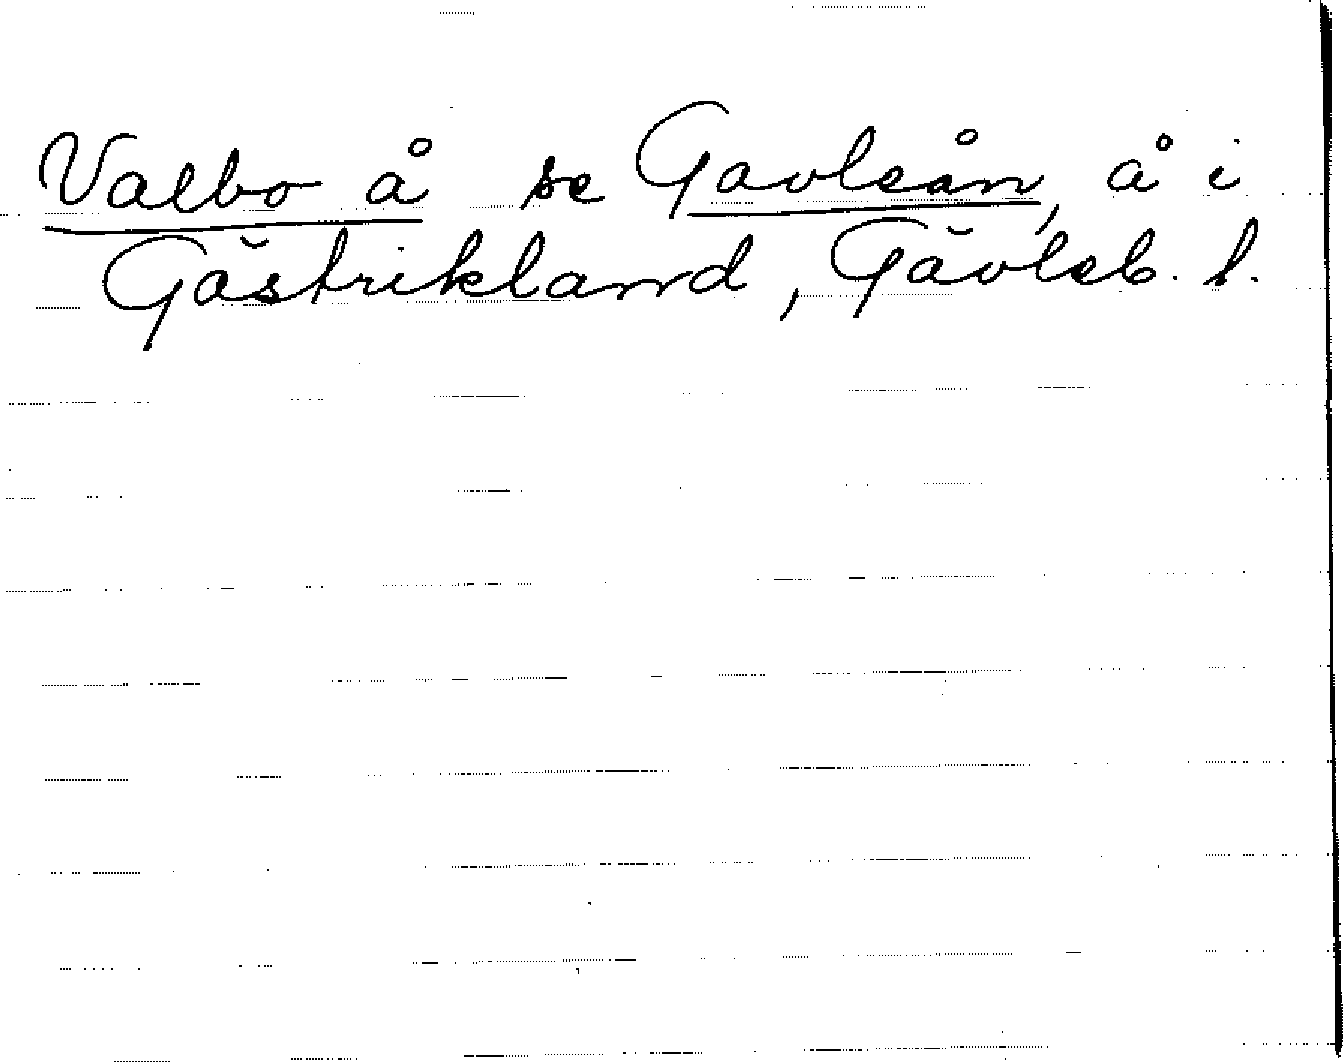 Valbo å se Gavleån, å i
Gästrikland, Gävleb. l.